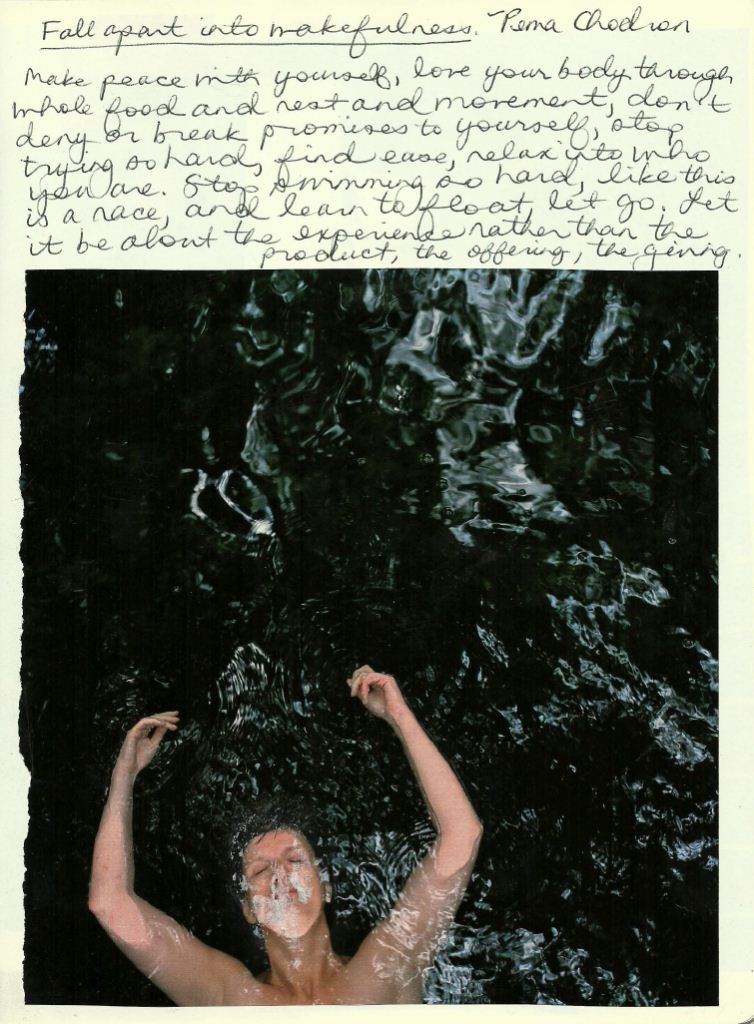 Fall apart into wakefulness. ~Pema Chodron
Make peace with yourself, love your body through
whole food and rest and movement, don't
deny or break promises to yourself, stop
trying so hard, find ease, relax into who
you are. Stop swimming so hard, like this
is a race, and learn to float, let go. Let
it be about the experience rather than the
product, the offering, the giving.